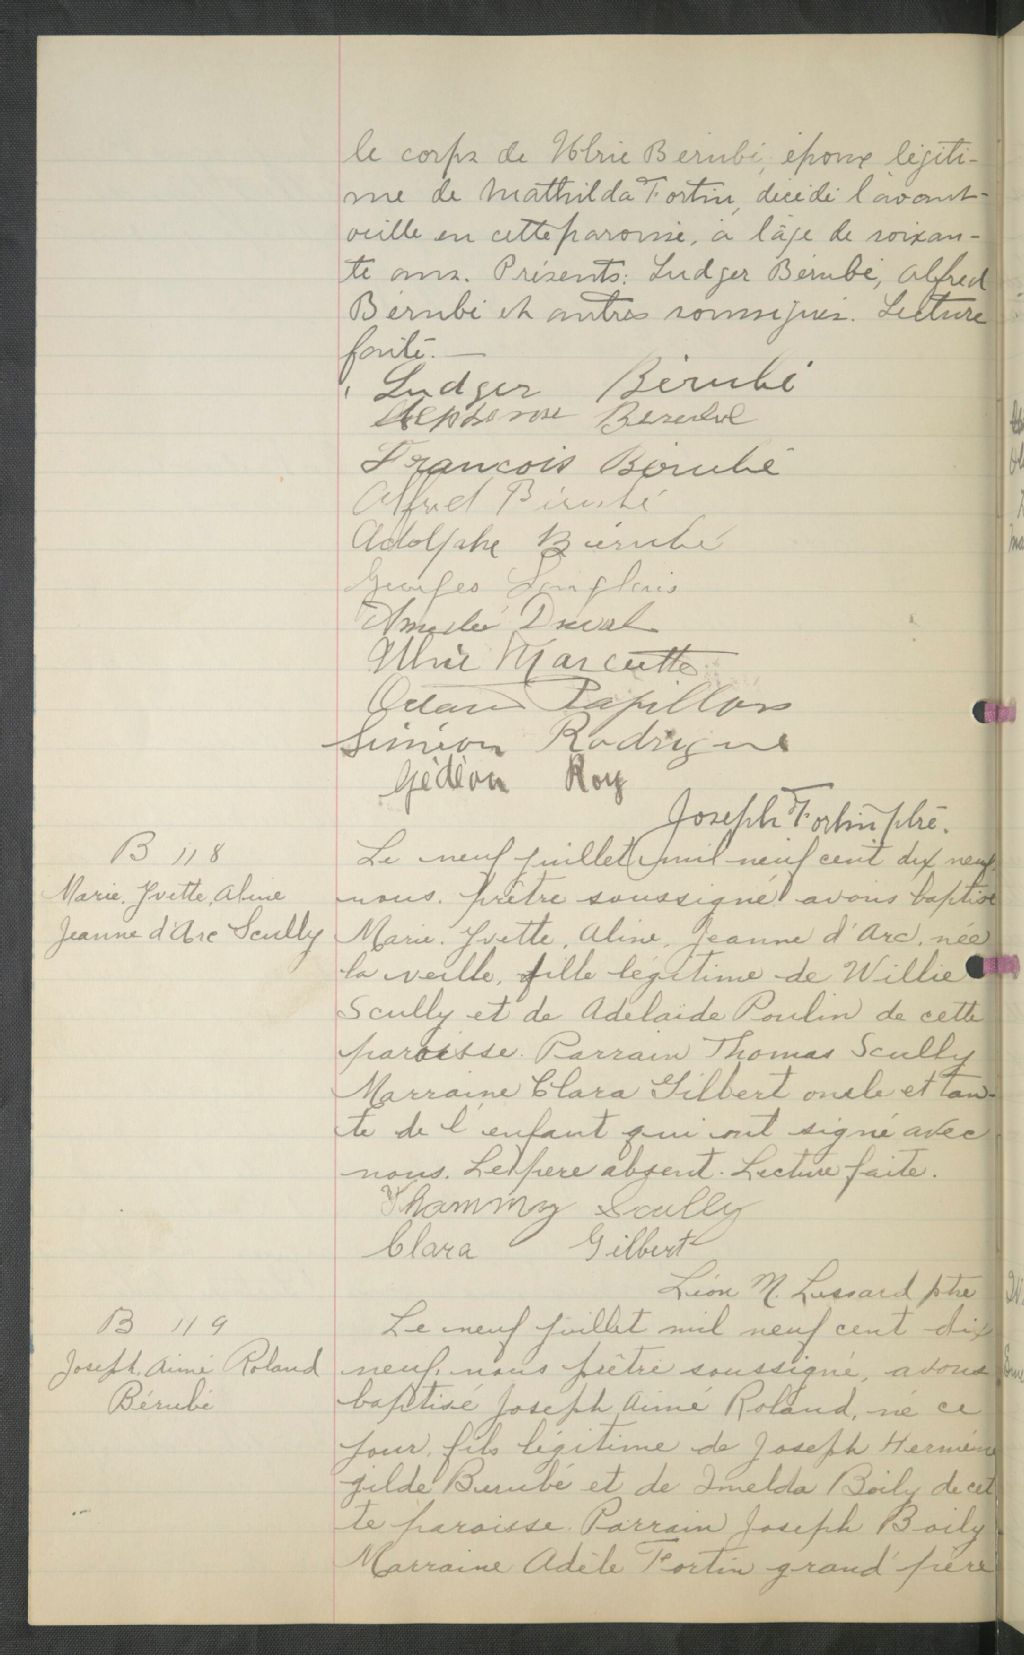 le corps de Ulric Bérubé, époux légiti-
me de Mathilda Fortin, décédé l'avant-
veille en cette paroisse, à l'âge de soixan-
te ans. Présents: Ludger Bérubé, Alfred
Bérubé et autres soussignés. Lecture
faite.—
Ludger Bérubé
Bérubé
François Bérubé
Alfred Bérubé
Adolphe Bérubé
Georges Langlais
Amédé Duval
Ulric Marcotte
Octave Papillon
Siméon Rodrigue
Gédéon Roy
Joseph Fortin ptre.
B 118
Marie, Yvette, Aline
Jeanne d'Arc Scully
Le neuf juillet mil neuf cent dix neuf,
nous, prêtre soussigné avons baptisé
Marie, Yvette, Aline, Jeanne d'Arc, née
la veille, fille légitime de Willie
Scully et de Adelaide Poulin de cette
paroisse. Parrain Thomas Scully
Marraine Clara Gilbert oncle et tan-
te de l'enfant qui ont signé avec
nous. Le père absent. Lecture faite.
Thommy Scully
Clara Gilbert
Léon N. Lessard ptre
B 119
Joseph, Aimé Roland
Bérubé
Le neuf juillet mil neuf cent dix
neuf, nous prêtre soussigné, avons
baptisé Joseph Aimé Roland, né ce
jour, fils légitime de Joseph Herméné
gilde Bérubé et de Imelda Boily de cet
te paroisse. Parrain Joseph Boily
Marraine Adèle Fortin grand'père